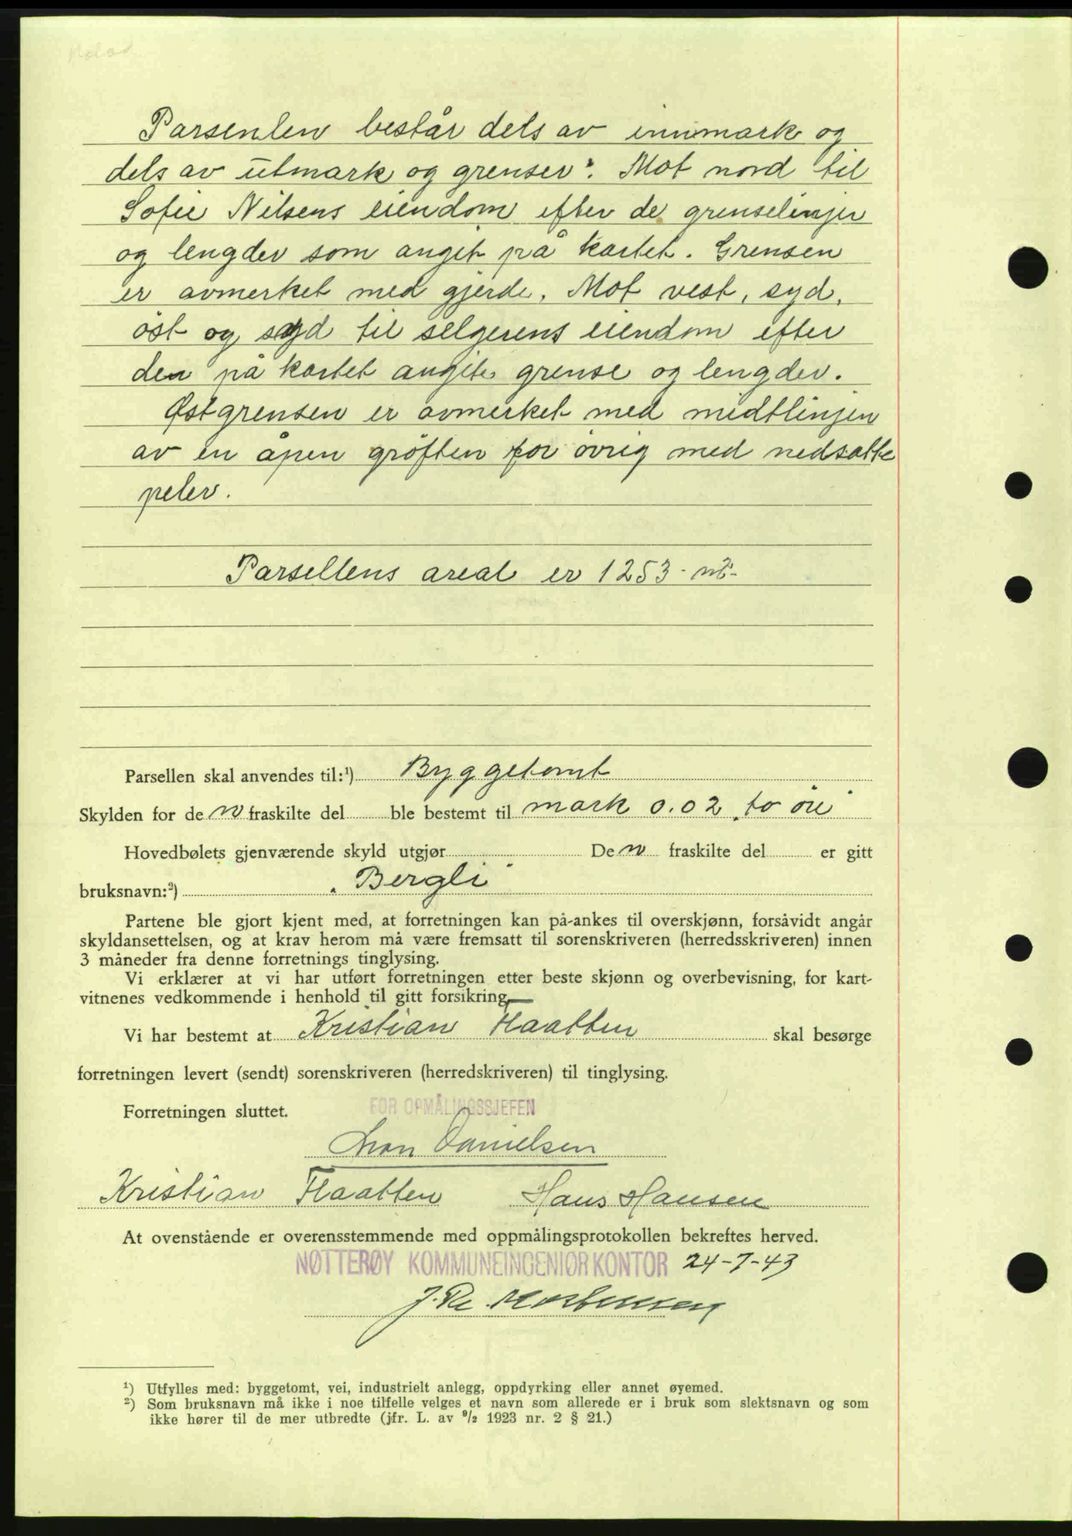 Parsenlen består dels av innmark og
dels av utmark og grenser: Mot nord til
Sofie Nilsens eiendom efter de grenselinjer
og lengder som angit på kartet. Grensen
er avmerket med gjerde. Mot vest, syd,
öst og syd til selgerens eiendom efter
den på kartet angite grense og lengder.
Østgrensen er avmerket med midtlinjen
av en åpen gröften for övrig med nedsatte
peler.
Parsellens areal er 1253 - m².
Parsellen skal anvendes til:¹) Byggetomt
Skylden for de n fraskilte del ble bestemt til mark 0.02 „to öre"
Hovedbølets gjenværende skyld utgjør De n fraskilte del er gitt
bruksnavn:²) „Bergli"
Partene ble gjort kjent med, at forretningen kan på-ankes til overskjønn, forsåvidt angår
skyldansettelsen, og at krav herom må være fremsatt til sorenskriveren (herredsskriveren) innen
3 måneder fra denne forretnings tinglysing.
Vi erklærer at vi har utført forretningen etter beste skjønn og overbevisning, for kart-
vitnenes vedkommende i henhold til gitt forsikring.
Vi har bestemt at Kristian Flaatten skal besørge
forretningen levert (sendt) sorenskriveren (herredskriveren) til tinglysing.
Forretningen sluttet. FOR OPMÅLINGSSJEFEN
Danielsen
Kristian Flaatten Hans Hansen
At ovenstående er overensstemmende med oppmålingsprotokollen bekreftes herved.
NØTTERØY KOMMUNEINGENIØRKONTOR 24-7-43
¹) Utfylles med: byggetomt, vei, industrielt anlegg, oppdyrking eller annet øyemed.
²) Som bruksnavn må ikke i noe tilfelle velges et navn som allerede er i bruk som slektsnavn og som
ikke hører til de mer utbredte (jfr. L. av ⁹/₂ 1923 nr. 2 § 21.)